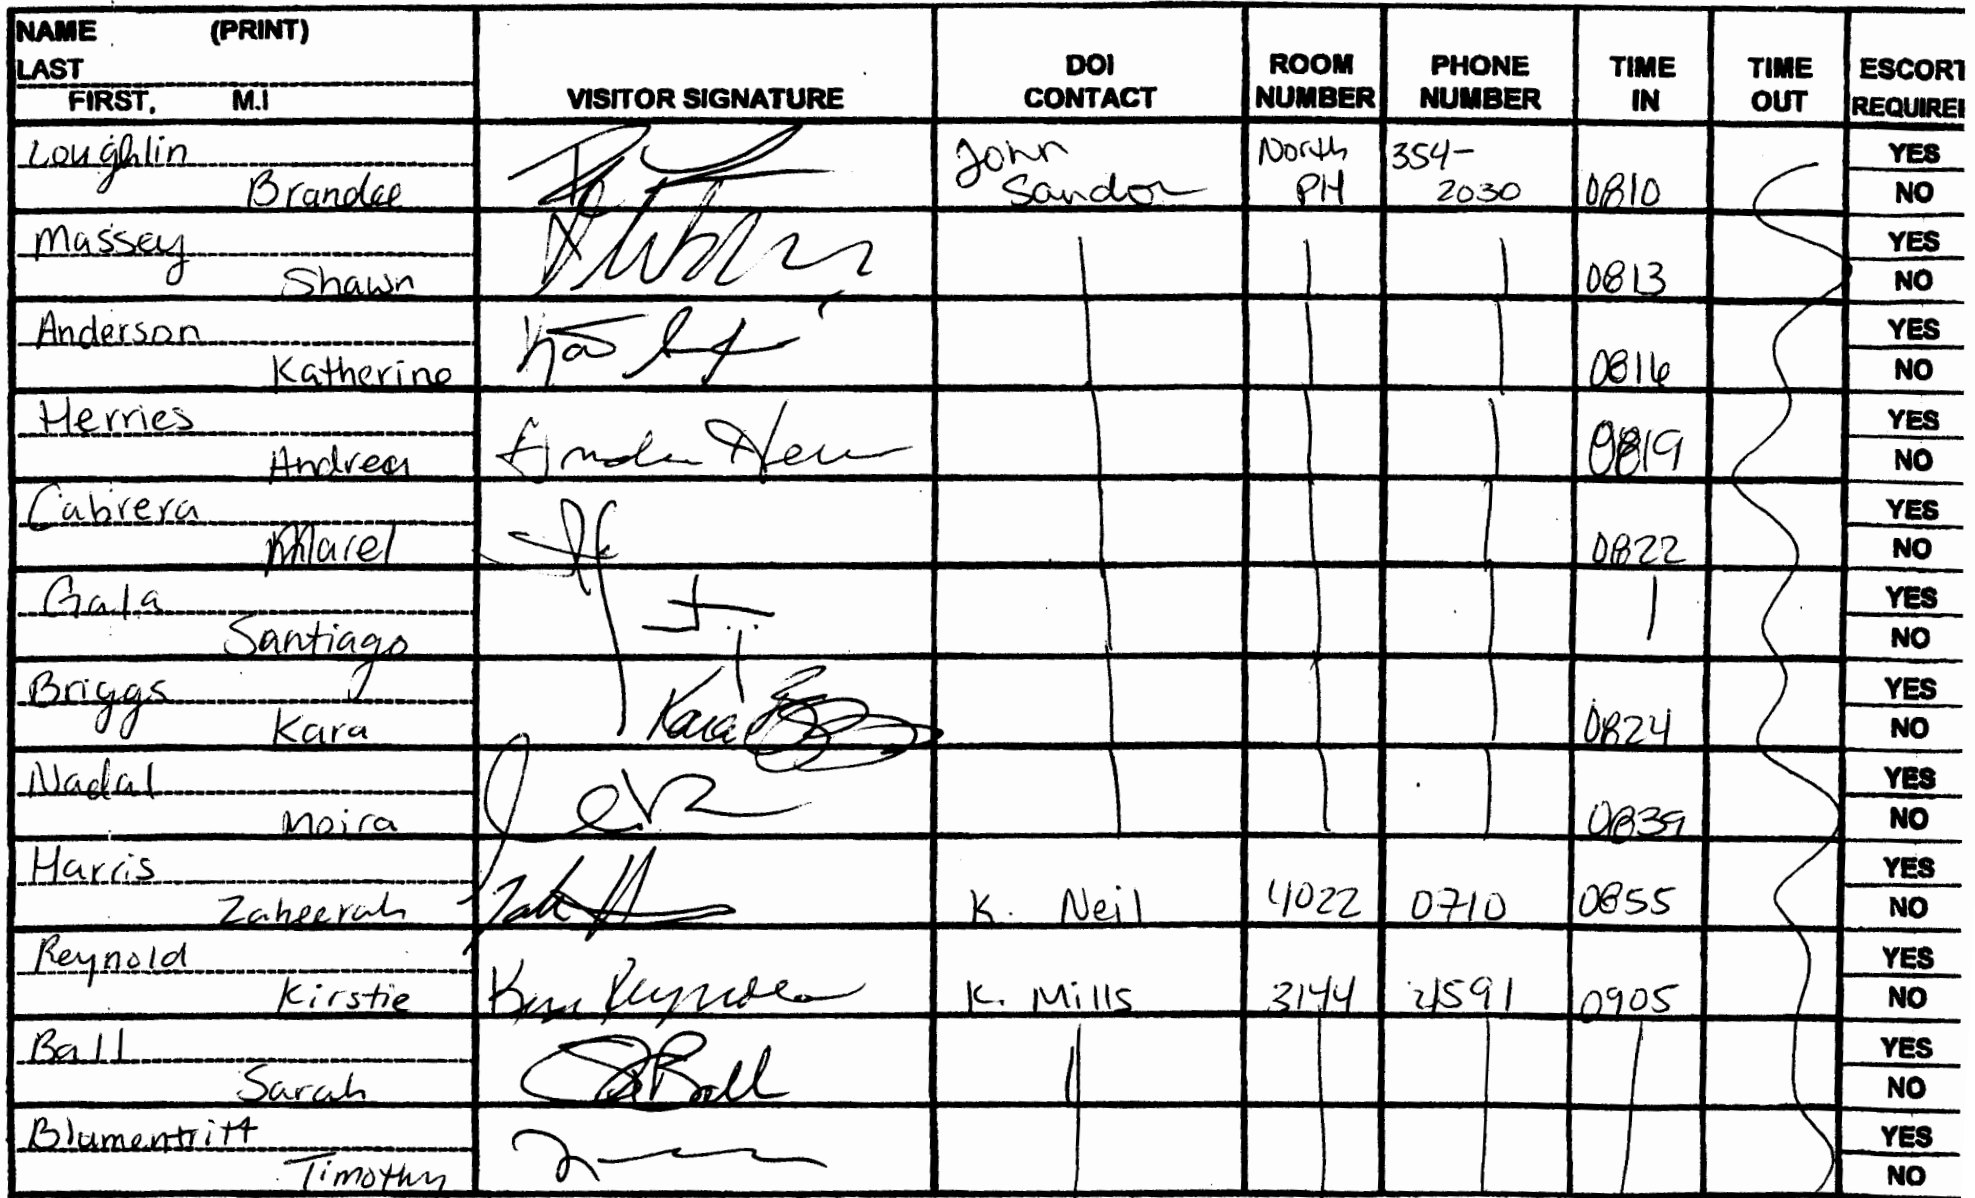 NAME (PRINT)
LAST
FIRST, M.I
VISITOR SIGNATURE
DOI CONTACT
ROOM NUMBER
PHONE NUMBER
TIME IN
TIME OUT
ESCORT REQUIREI
Loughlin
Brandee
John Sandor
North PH
354-2030
0810
YES
NO
Massey
Shawn
0813
YES
NO
Anderson
Katherine
0816
YES
NO
Herries
Andrea
0819
YES
NO
Cabrera
Marel
0822
YES
NO
Gala
Santiago
YES
NO
Briggs
Kara
Kara
0824
YES
NO
Nadal
Moira
0839
YES
NO
Harris
Zaheerah
K. Neil
4022
0710
0855
YES
NO
Reynold
Kirstie
K. Mills
3144
4591
0905
YES
NO
Ball
Sarah
Ball
YES
NO
Blumentritt
Timothy
YES
NO